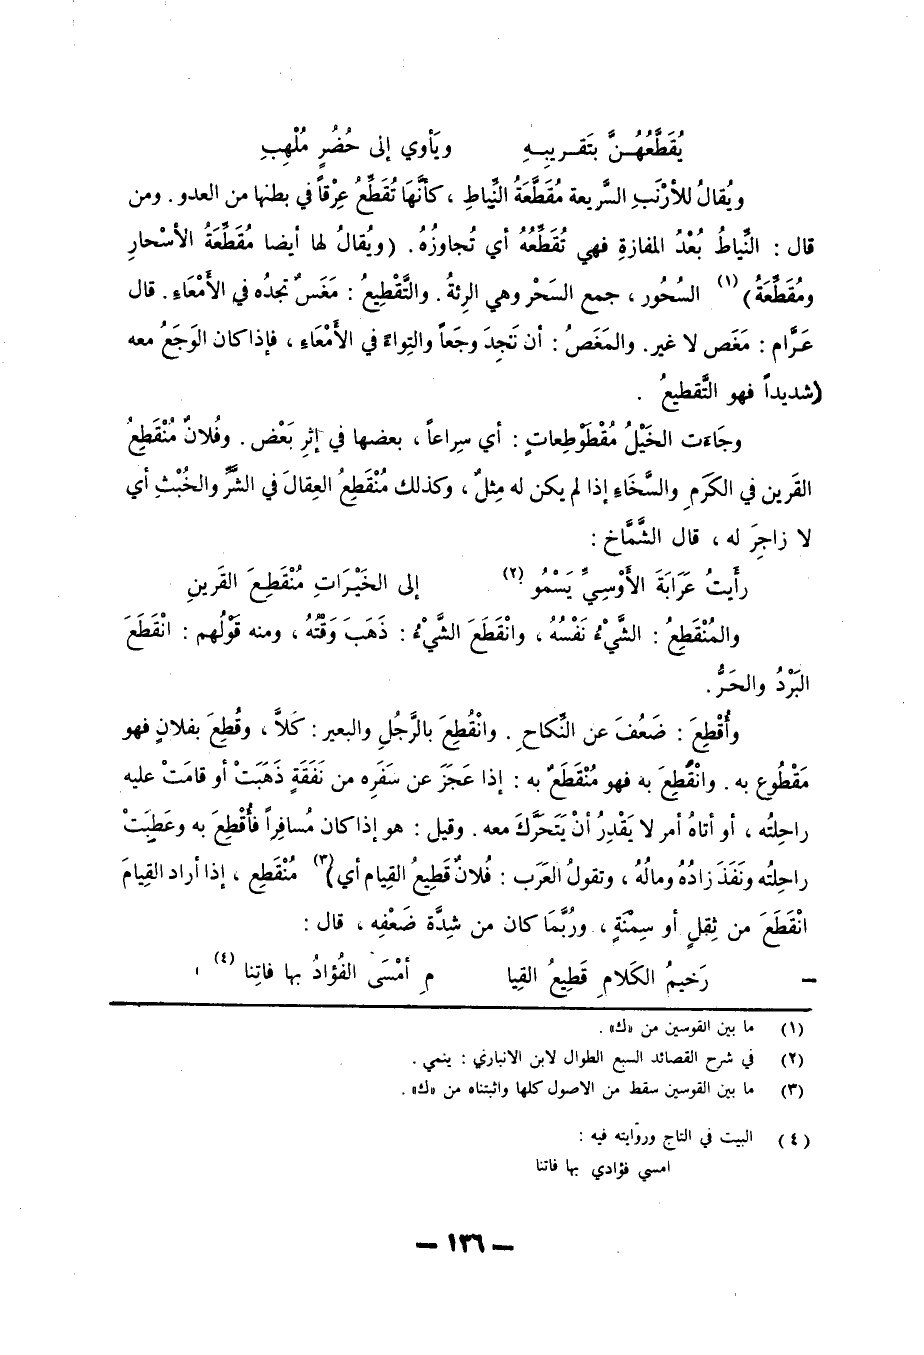 يُقَطَّعُهُنَّ بتَقريبِهِ ويَأوي إلى حُضُرٍ مُلْهِبِ
ويُقالُ للأرْنَبِ السَّريعة مُقَطِّعَةُ النِّياطِ ، كأنَّها تُقَطِّعُ عِرْقاً في بطنها من العدو . ومن
قال : النِّياطُ بُعْدُ المفازةِ فهي تُقَطِّعُهُ أي تُجاوزُهُ . (ويُقالُ لها أيضا مُقَطِّعَةُ الأسْحارِ
ومُقَطِّعَةُ) (١) السُحُور ، جمع السَحْر وهي الرِئةُ . والتَّقْطِيعُ : مَغَسٌ تجدُه في الأَمْعَاءِ . قال
عَرَّام : مَغَص لا غير . والمَغَصُ : أن تَجِدَ وجَعاً والتِواءً في الأَمْعَاءِ ، فإذا كان الوَجَعُ معه
(شديداً فهو التَّقطيعُ .
وجَاءَت الخَيْلُ مُقْطَوْطِعاتٍ : أي سِراعاً ، بعضها في إثرِ بَعْض . وفُلانٌ مُنْقَطِعُ
القَرين في الكَرَمِ والسَّخَاءِ إذا لم يكن له مِثلٌ ، وكذلك مُنْقَطِعُ العِقالَ في الشَّرِّ والخُبْثِ أي
لا زاجِرَ له ، قال الشَّمَّاخ :
رأَيتُ عَرَابَةَ الأَوْسِيَّ يَسْمُو (٢) إلى الخَيْرَاتِ مُنْقَطِعَ القَرينِ
والمُنْقَطِعُ : الشَّيْءُ نَفْسُهُ ، وانْقَطَعَ الشَّيْءُ : ذَهَبَ وَقْتُهُ ، ومنه قَوْلُهم : انْقَطَعَ
البَرْدُ والحَرُّ .
وأُقْطِعَ : ضَعُفَ عن النِّكاحِ . وانْقُطِعَ بالرَّجُلِ والبعير : كَلاَّ ، وقُطِعَ بفلانٍ فهو
مَقْطُوع به . وانْقُطِعَ به فهو مُنْقَطَعٌ به : إذا عَجَزَ عن سَفَرِه من نَفَقَةٍ ذَهَبَتْ أو قامَتْ عليه
راحِلتُه ، أو أتاهُ أمر لا يَقْدِرُ أنْ يَتَحَرَّكَ معه . وقيل : هو إذا كان مُسافِراً فأُقْطِعَ به وعَطِبَتْ
راحِلتُه ونَفَذَ زادُهُ ومالُهُ ، وتقولُ العَرَب : فُلانٌ قَطِيعُ القِيام أي) (٣) مُنْقَطِع ، إذا أراد القِيامَ
انْقَطَعَ من ثِقلٍ أو سِمْنَةٍ ، ورُبَّمَا كان من شِدَّة ضَعْفِه ، قال :
رَخيمُ الكلامِ قَطِيعُ القِيا مِ أمْسَى الفُؤادُ بها فاتِنا (٤)
(١) ما بين القوسين من «ك» .
(٢) في شرح القصائد السبع الطوال لابن الانباري : ينمي .
(٣) ما بين القوسين سقط من الاصول كلها واثبتناه من «ك» .
(٤) البيت في التاج وروايته فيه :
امسي فؤادي بها فاتنا
— ١٣٦ —